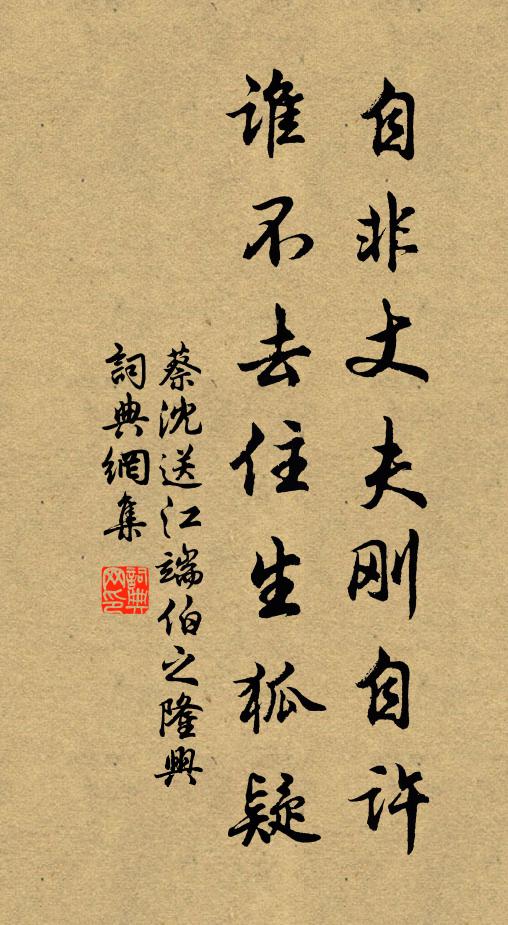 自非丈夫刚自许
谁不去住生狐疑
蔡沈送江端伯之隆興
詞典網集
詞典网印